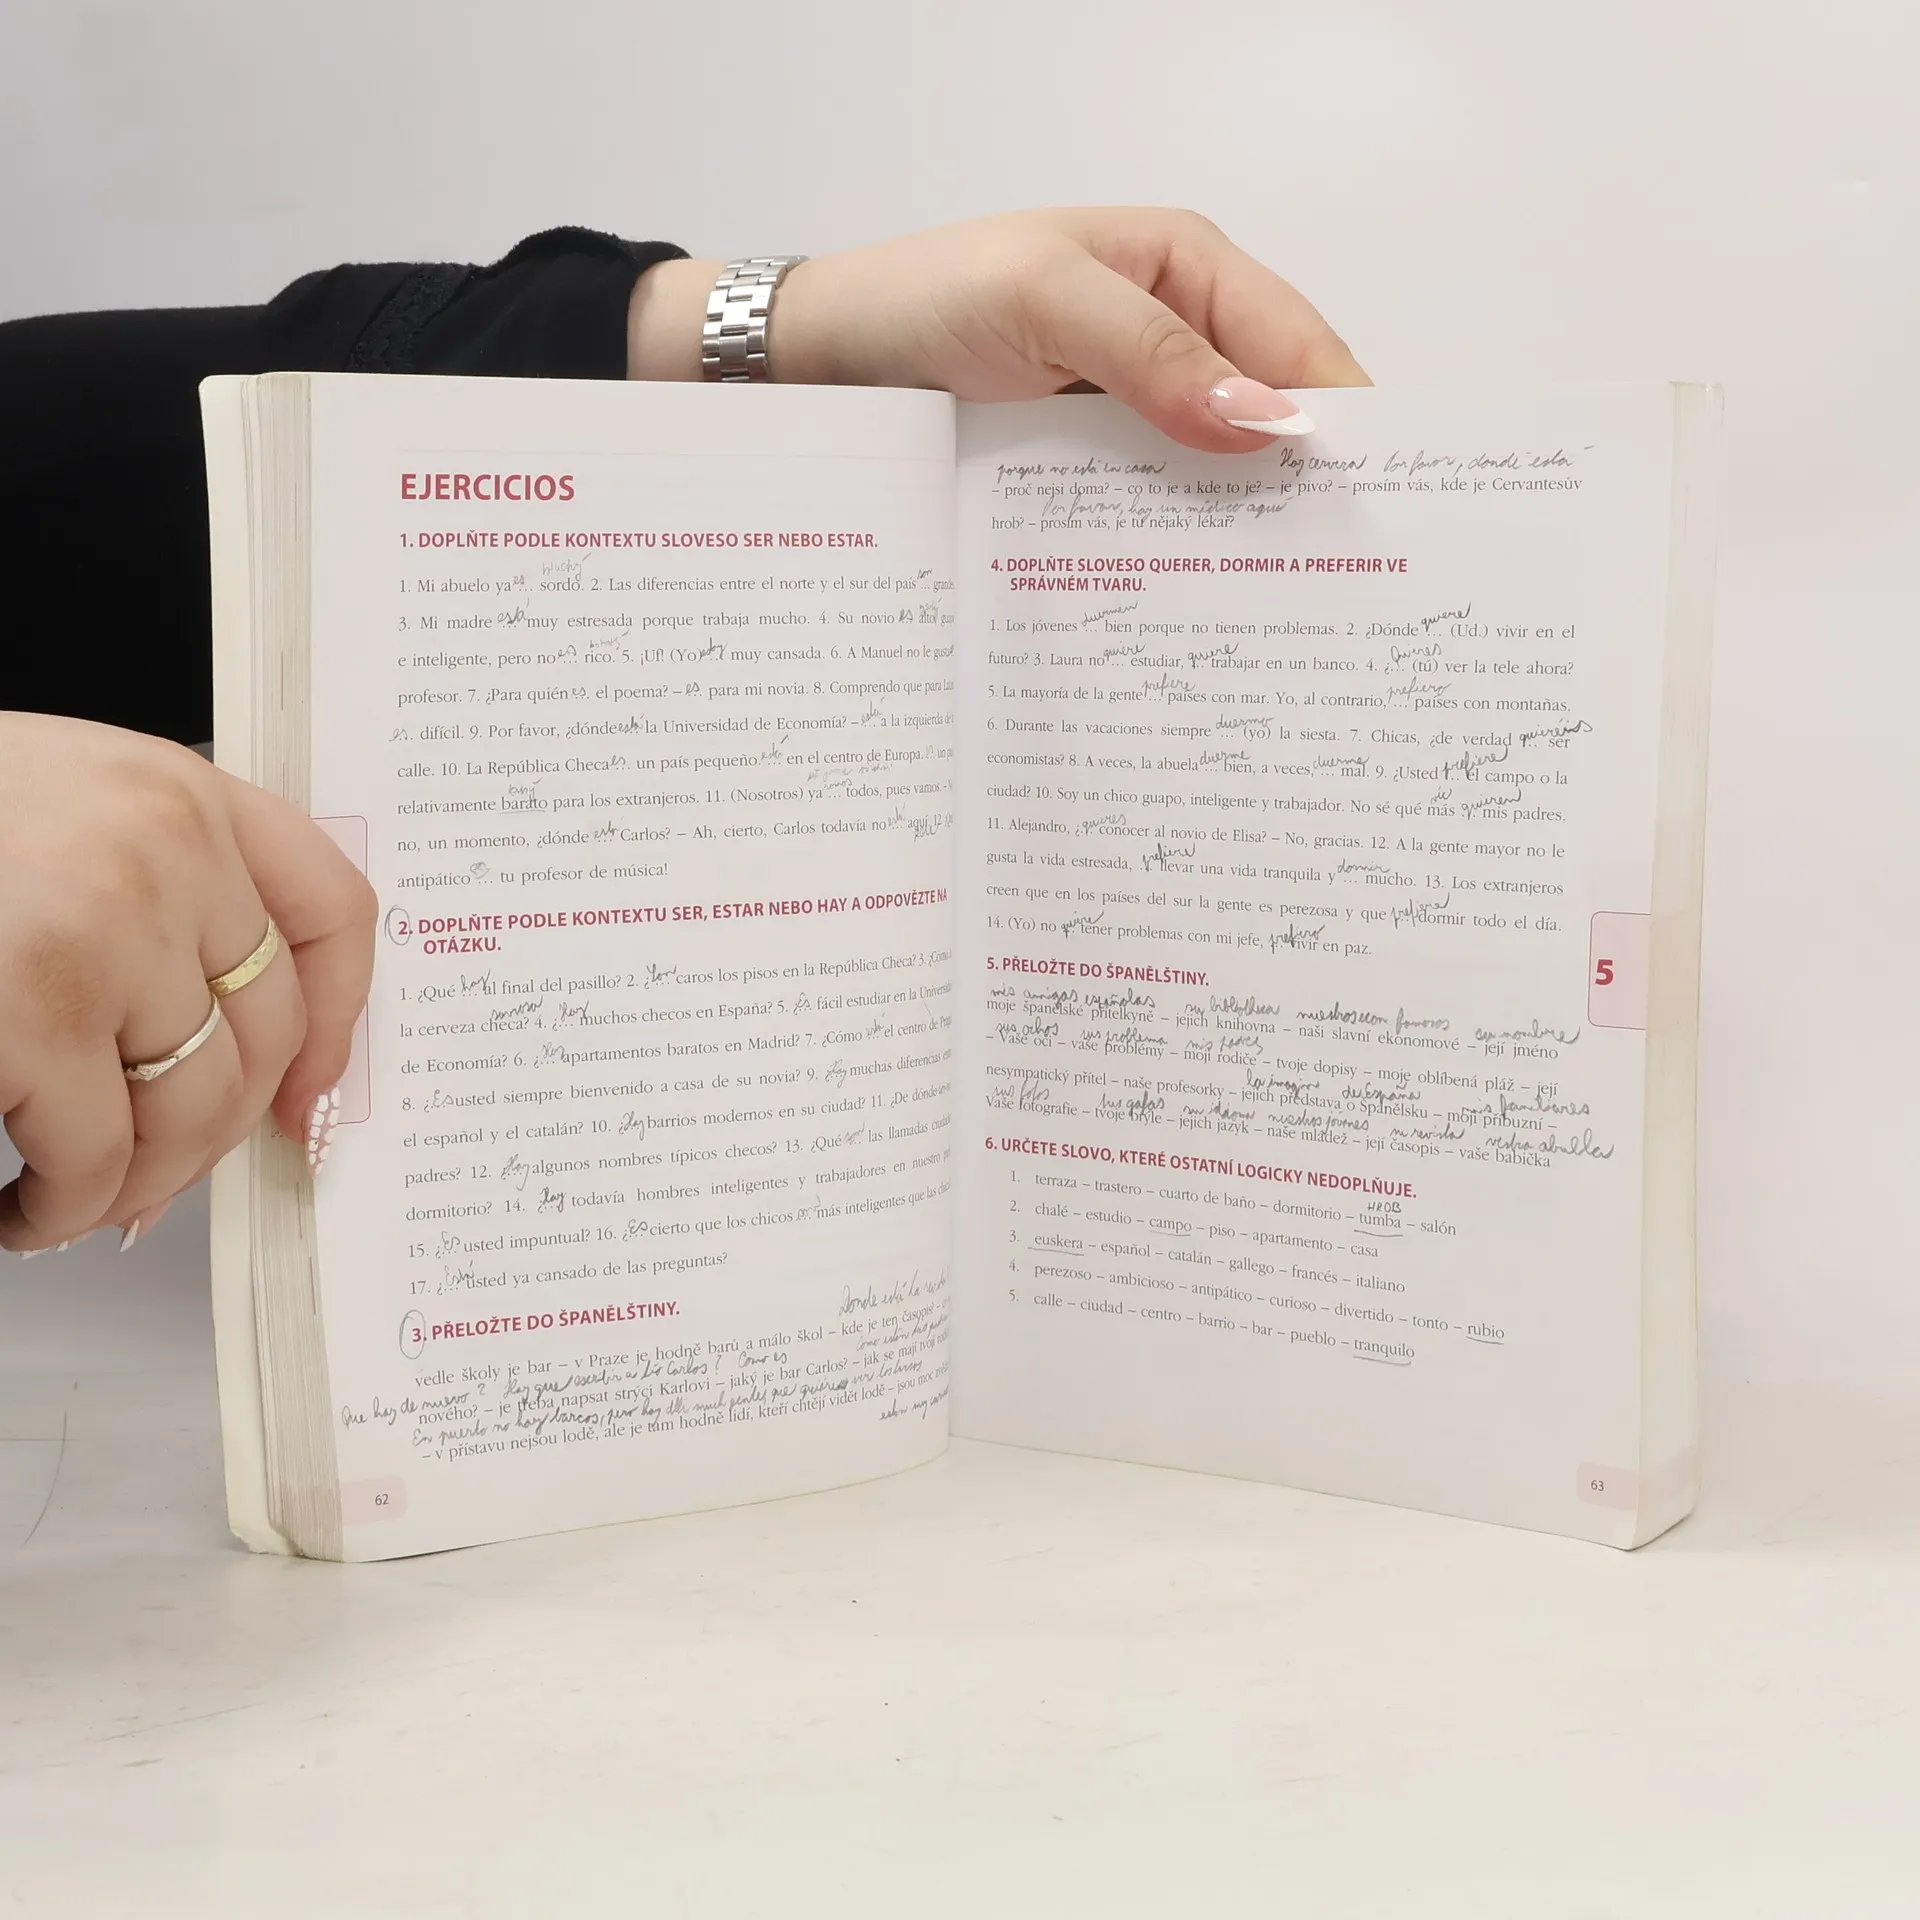 EJERCICIOS
1. DOPLŇTE PODLE KONTEXTU SLOVESO SER NEBO ESTAR.
bluchý
1. Mi abuelo ya es sordo. 2. Las diferencias entre el norte y el sur del país son grande
3. Mi madre está muy estresada porque trabaja mucho. 4. Su novio es alto,
e inteligente, pero no es rico. 5. ¡Uf! (Yo) estoy muy cansada. 6. A Manuel no le gusta
profesor. 7. ¿Para quién es el poema? – es para mi novia. 8. Comprendo que para
es difícil. 9. Por favor, ¿dónde está la Universidad de Economía? – está a la izquierda de
calle. 10. La República Checa es un país pequeño. está en el centro de Europa.
relativamente barato para los extranjeros. 11. (Nosotros) ya somos todos, pues vamos. –
no, un momento, ¿dónde está Carlos? – Ah, cierto, Carlos todavía no está aquí. 12.
antipático ... tu profesor de música!
2. DOPLŇTE PODLE KONTEXTU SER, ESTAR NEBO HAY A ODPOVĚZTE NA
OTÁZKU.
1. ¿Qué hay al final del pasillo? 2. ¿Son caros los pisos en la República Checa? 3. ¿Cómo
la cerveza checa? 4. ¿Hay muchos checos en España? 5. ¿Es fácil estudiar en la Universida
de Economía? 6. ¿Hay apartamentos baratos en Madrid? 7. ¿Cómo está el centro de
8. ¿Es usted siempre bienvenido a casa de su novia? 9. Hay muchas diferencias
el español y el catalán? 10. ¿Hay barrios modernos en su ciudad? 11. ¿De dónde
padres? 12. ¿Hay algunos nombres típicos checos? 13. ¿Qué son las llamadas
dormitorio? 14. ¿Hay todavía hombres inteligentes y trabajadores en nuestro
15. ¿Es usted impuntual? 16. ¿Es cierto que los chicos son más inteligentes que las
17. ¿Está usted ya cansado de las preguntas?
3. PŘELOŽTE DO ŠPANĚLŠTINY.
Donde está la
vedle školy je bar – v Praze je hodně barů a málo škol – kde je ten časopis? –
Que hay de nuevo? Hay que escribir a tío Carlos? Como es
nového? – je třeba napsat strýci Karlovi – jaký je bar Carlos? – jak se mají tvoji
En puerto no hay barcos, pero hay
– v přístavu nejsou lodě, ale je tam hodně lidí, kteří chtějí vidět lodě – jsou moc
62
porque no está en casa Hay cerveza Por favor, donde está
– proč nejsi doma? – co to je a kde to je? – je pivo? – prosím vás, kde je Cervantesův
Por favor, hay un médico aquí
hrob? – prosím vás, je tu nějaký lékař?
4. DOPLŇTE SLOVESO QUERER, DORMIR A PREFERIR VE
SPRÁVNÉM TVARU.
1. Los jóvenes duermen bien porque no tienen problemas. 2. ¿Dónde quiere (Ud.) vivir en el
futuro? 3. Laura no quiere estudiar, quiere trabajar en un banco. 4. ¿Quieres (tú) ver la tele ahora?
5. La mayoría de la gente prefiere países con mar. Yo, al contrario, prefiero países con montañas.
6. Durante las vacaciones siempre duermo (yo) la siesta. 7. Chicas, ¿de verdad queréis ser
economistas? 8. A veces, la abuela duerme bien, a veces, duerme mal. 9. ¿Usted prefiere el campo o la
ciudad? 10. Soy un chico guapo, inteligente y trabajador. No sé qué más quieren mis padres.
11. Alejandro, ¿quieres conocer al novio de Elisa? – No, gracias. 12. A la gente mayor no le
gusta la vida estresada, prefiere llevar una vida tranquila y dormir mucho. 13. Los extranjeros
creen que en los países del sur la gente es perezosa y que prefiere dormir todo el día.
14. (Yo) no quiere tener problemas con mi jefe, prefiero vivir en paz.
5. PŘELOŽTE DO ŠPANĚLŠTINY.
mis amigas españolas su bibliotheca nuestros econ famosos su nombre
moje španělské přítelkyně – jejich knihovna – naši slavní ekonomové – její jméno
sus ochos sus problema mis padres
– Vaše oči – vaše problémy – moji rodiče – tvoje dopisy – moje oblíbená pláž – její
nesympatický přítel – naše profesorky – jejich představa o Španělsku – moji příbuzní –
la imagine de España mis familiares
sus fotos tus gafas su idioma nuestros jóvenes su revista vestra abuella
Vaše fotografie – tvoje brýle – jejich jazyk – naše mládež – její časopis – vaše babička
6. URČETE SLOVO, KTERÉ OSTATNÍ LOGICKY NEDOPLŇUJE.
HROB
1. terraza – trastero – cuarto de baño – dormitorio – tumba – salón
2. chalé – estudio – campo – piso – apartamento – casa
3. euskera – español – catalán – gallego – francés – italiano
4. perezoso – ambicioso – antipático – curioso – divertido – tonto – rubio
5. calle – ciudad – centro – barrio – bar – pueblo – tranquilo
5
63